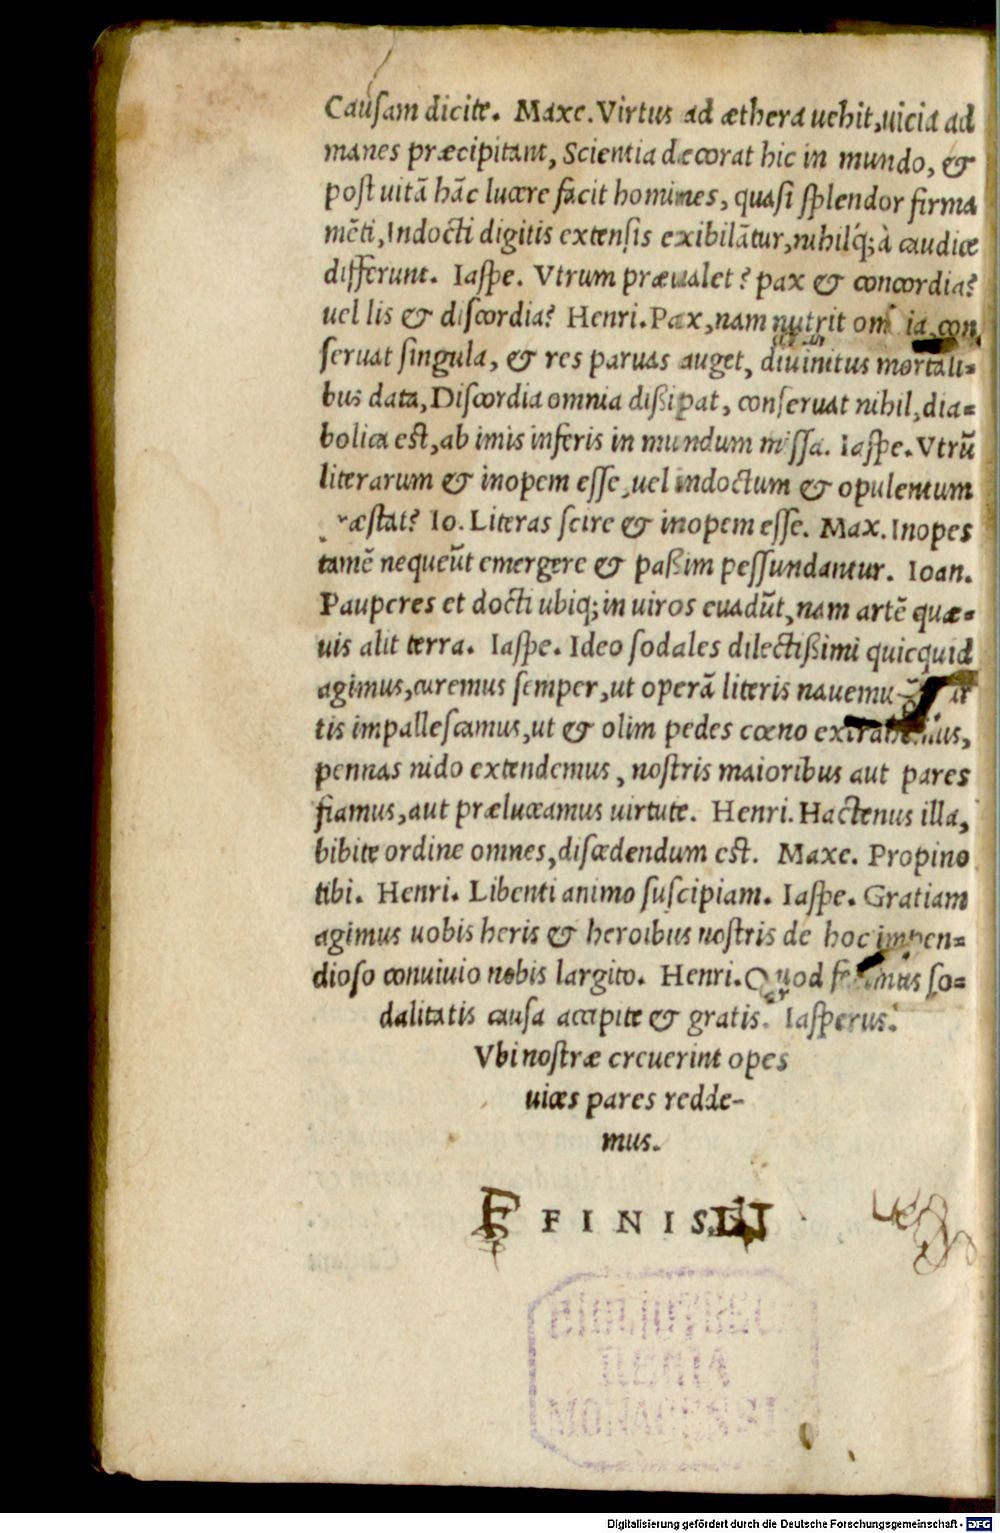 Causam dicite. Maxe. Virtus ad æthera uehit, uicia ad
manes præcipitant, Scientia decorat hic in mundo, &
post uitā hāc lucere facit homines, quasi splendor firma
mēti, Indocti digitis extensis exibilātur, nihilq́; à caudice
differunt. Iaspe. Vtrum præualet? pax & concordia?
uel lis & discordia? Henri. Pax, nam nutrit omnia, con
seruat singula, & res paruas auget, diuinitus mortali=
bus data, Discordia omnia dißipat, conseruat nihil, dia=
bolica est, ab imis inferis in mundum missa. Iaspe. Vtrū
literarum & inopem esse, uel indoctum & opulentum
ræstat? Io. Literas scire & inopem esse. Max. Inopes
tamē nequeūt emergere & paßim pessundantur. Ioan.
Pauperes et docti ubiq; in uiros euadūt, nam artē quæ=
uis alit terra. Iaspe. Ideo sodales dilectißimi quicquid
agimus, curemus semper, ut operā literis nauemus
tis impallescamus, ut & olim pedes cœno extrahemus,
pennas nido extendemus, nostris maioribus aut pares
fiamus, aut præluceamus uirtute. Henri. Hactenus illa,
bibite ordine omnes, discedendum est. Maxe. Propino
tibi. Henri. Libenti animo suscipiam. Iaspe. Gratiam
agimus uobis heris & heroibus nostris de hoc impen=
dioso conuiuio nobis largito. Henri. Quod fecimus so=
dalitatis causa accipite & gratis. Iasperus.
Vbi nostræ creuerint opes
uices pares redde-
mus.
FINIS
Digitalisierung gefördert durch die Deutsche Forschungsgemeinschaft - DFG